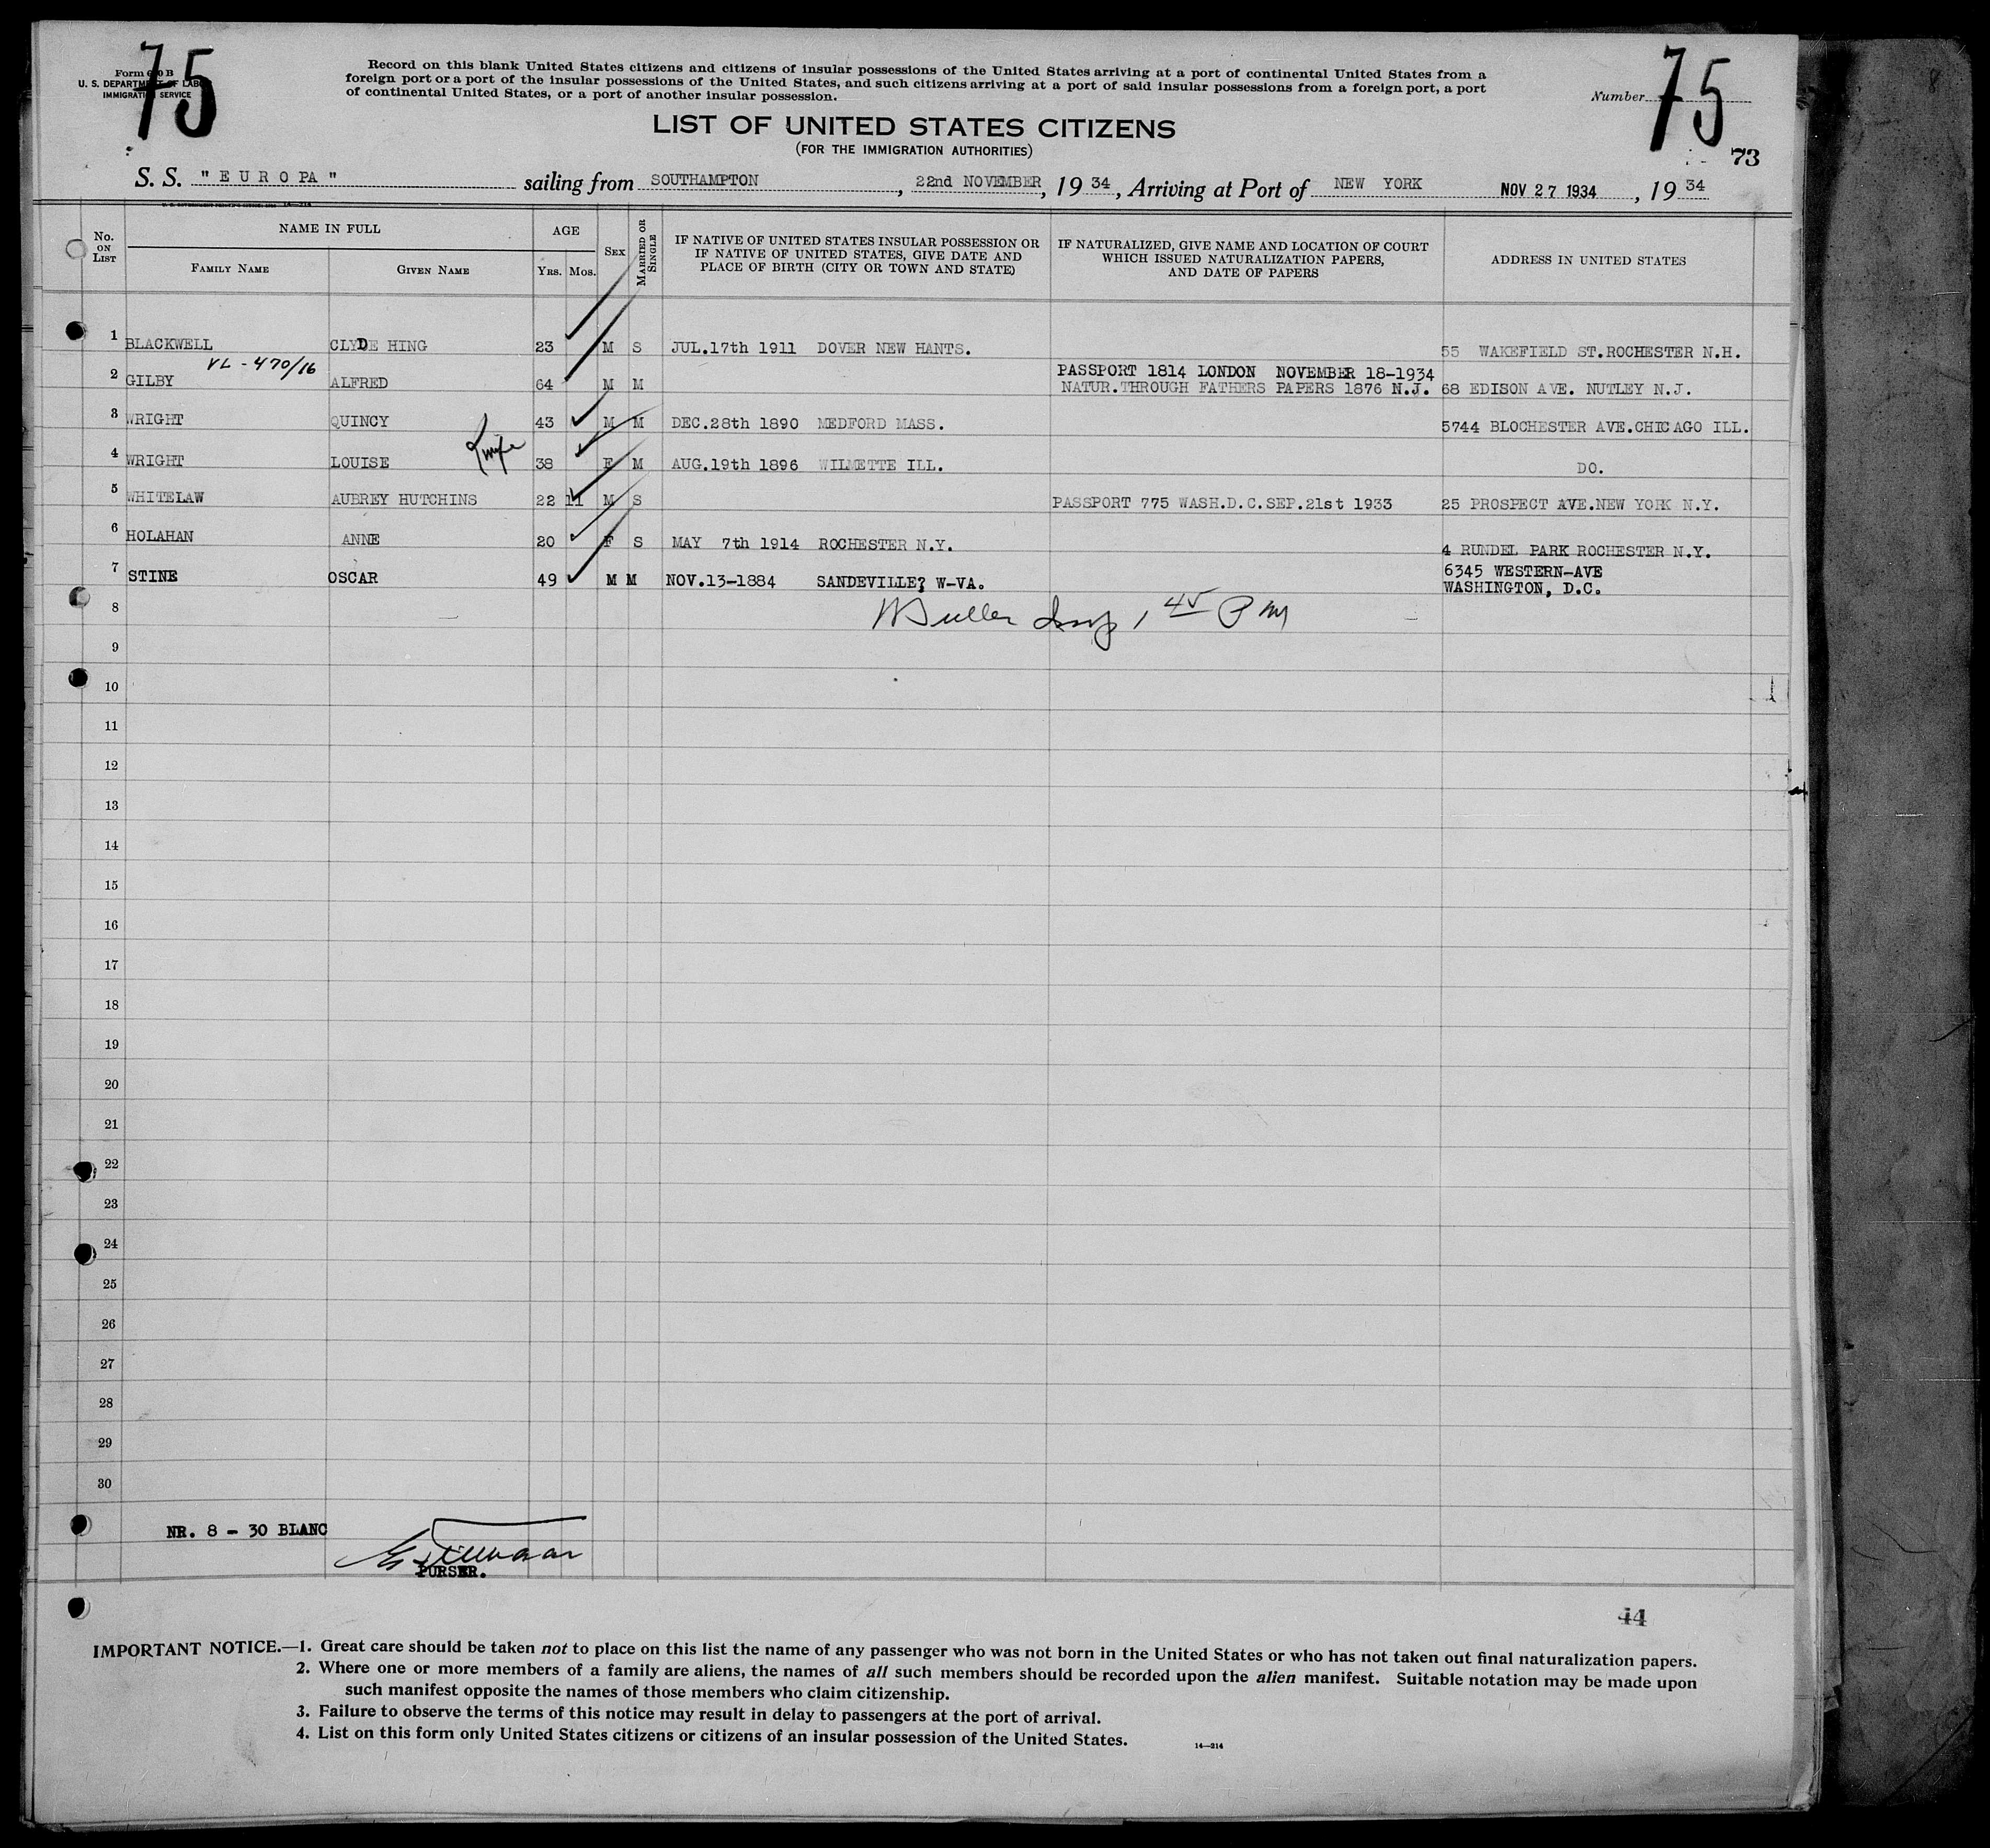 75
75
Form 630 B
U. S. DEPARTMENT OF LABOR
IMMIGRATION SERVICE
Record on this blank United States citizens and citizens of insular possessions of the United States arriving at a port of continental United States from a
foreign port or a port of the insular possessions of the United States, and such citizens arriving at a port of said insular possessions from a foreign port, a port
of continental United States, or a port of another insular possession.
Number
LIST OF UNITED STATES CITIZENS
(FOR THE IMMIGRATION AUTHORITIES)
73
S. S. "EUROPA" sailing from SOUTHAMPTON, 22nd NOVEMBER, 1934, Arriving at Port of NEW YORK NOV 27 1934, 1934
No. ON LIST
NAME IN FULL
FAMILY NAME
GIVEN NAME
AGE
YRS. MOS.
SEX
MARRIED OR SINGLE
IF NATIVE OF UNITED STATES INSULAR POSSESSION OR
IF NATIVE OF UNITED STATES, GIVE DATE AND
PLACE OF BIRTH (CITY OR TOWN AND STATE)
IF NATURALIZED, GIVE NAME AND LOCATION OF COURT
WHICH ISSUED NATURALIZATION PAPERS,
AND DATE OF PAPERS
ADDRESS IN UNITED STATES
1 BLACKWELL CLYDE HING 23 M S JUL.17th 1911 DOVER NEW HANTS. 55 WAKEFIELD ST.ROCHESTER N.H.
VL - 470/16
PASSPORT 1814 LONDON NOVEMBER 18-1934
2 GILBY ALFRED 64 M M NATUR.THROUGH FATHERS PAPERS 1876 N.J. 68 EDISON AVE. NUTLEY N.J.
3 WRIGHT QUINCY 43 M M DEC.28th 1890 MEDFORD MASS. 5744 BLOCHESTER AVE.CHICAGO ILL.
4 WRIGHT LOUISE 38 F M AUG.19th 1896 WILMETTE ILL. DO.
5 WHITELAW AUBREY HUTCHINS 22 11 M S PASSPORT 775 WASH.D.C.SEP.21st 1933 25 PROSPECT AVE.NEW YORK N.Y.
6 HOLAHAN ANNE 20 F S MAY 7th 1914 ROCHESTER N.Y. 4 RUNDEL PARK ROCHESTER N.Y.
7 STINE OSCAR 49 M M NOV.13-1884 SANDEVILLE? W-VA. 6345 WESTERN-AVE
WASHINGTON, D.C.
8
1 45 P M
9
10
11
12
13
14
15
16
17
18
19
20
21
22
23
24
25
26
27
28
29
30
NR. 8 - 30 BLANC
PURSER.
44
IMPORTANT NOTICE.—1. Great care should be taken not to place on this list the name of any passenger who was not born in the United States or who has not taken out final naturalization papers.
2. Where one or more members of a family are aliens, the names of all such members should be recorded upon the alien manifest. Suitable notation may be made upon
such manifest opposite the names of those members who claim citizenship.
3. Failure to observe the terms of this notice may result in delay to passengers at the port of arrival.
4. List on this form only United States citizens or citizens of an insular possession of the United States.
14—214